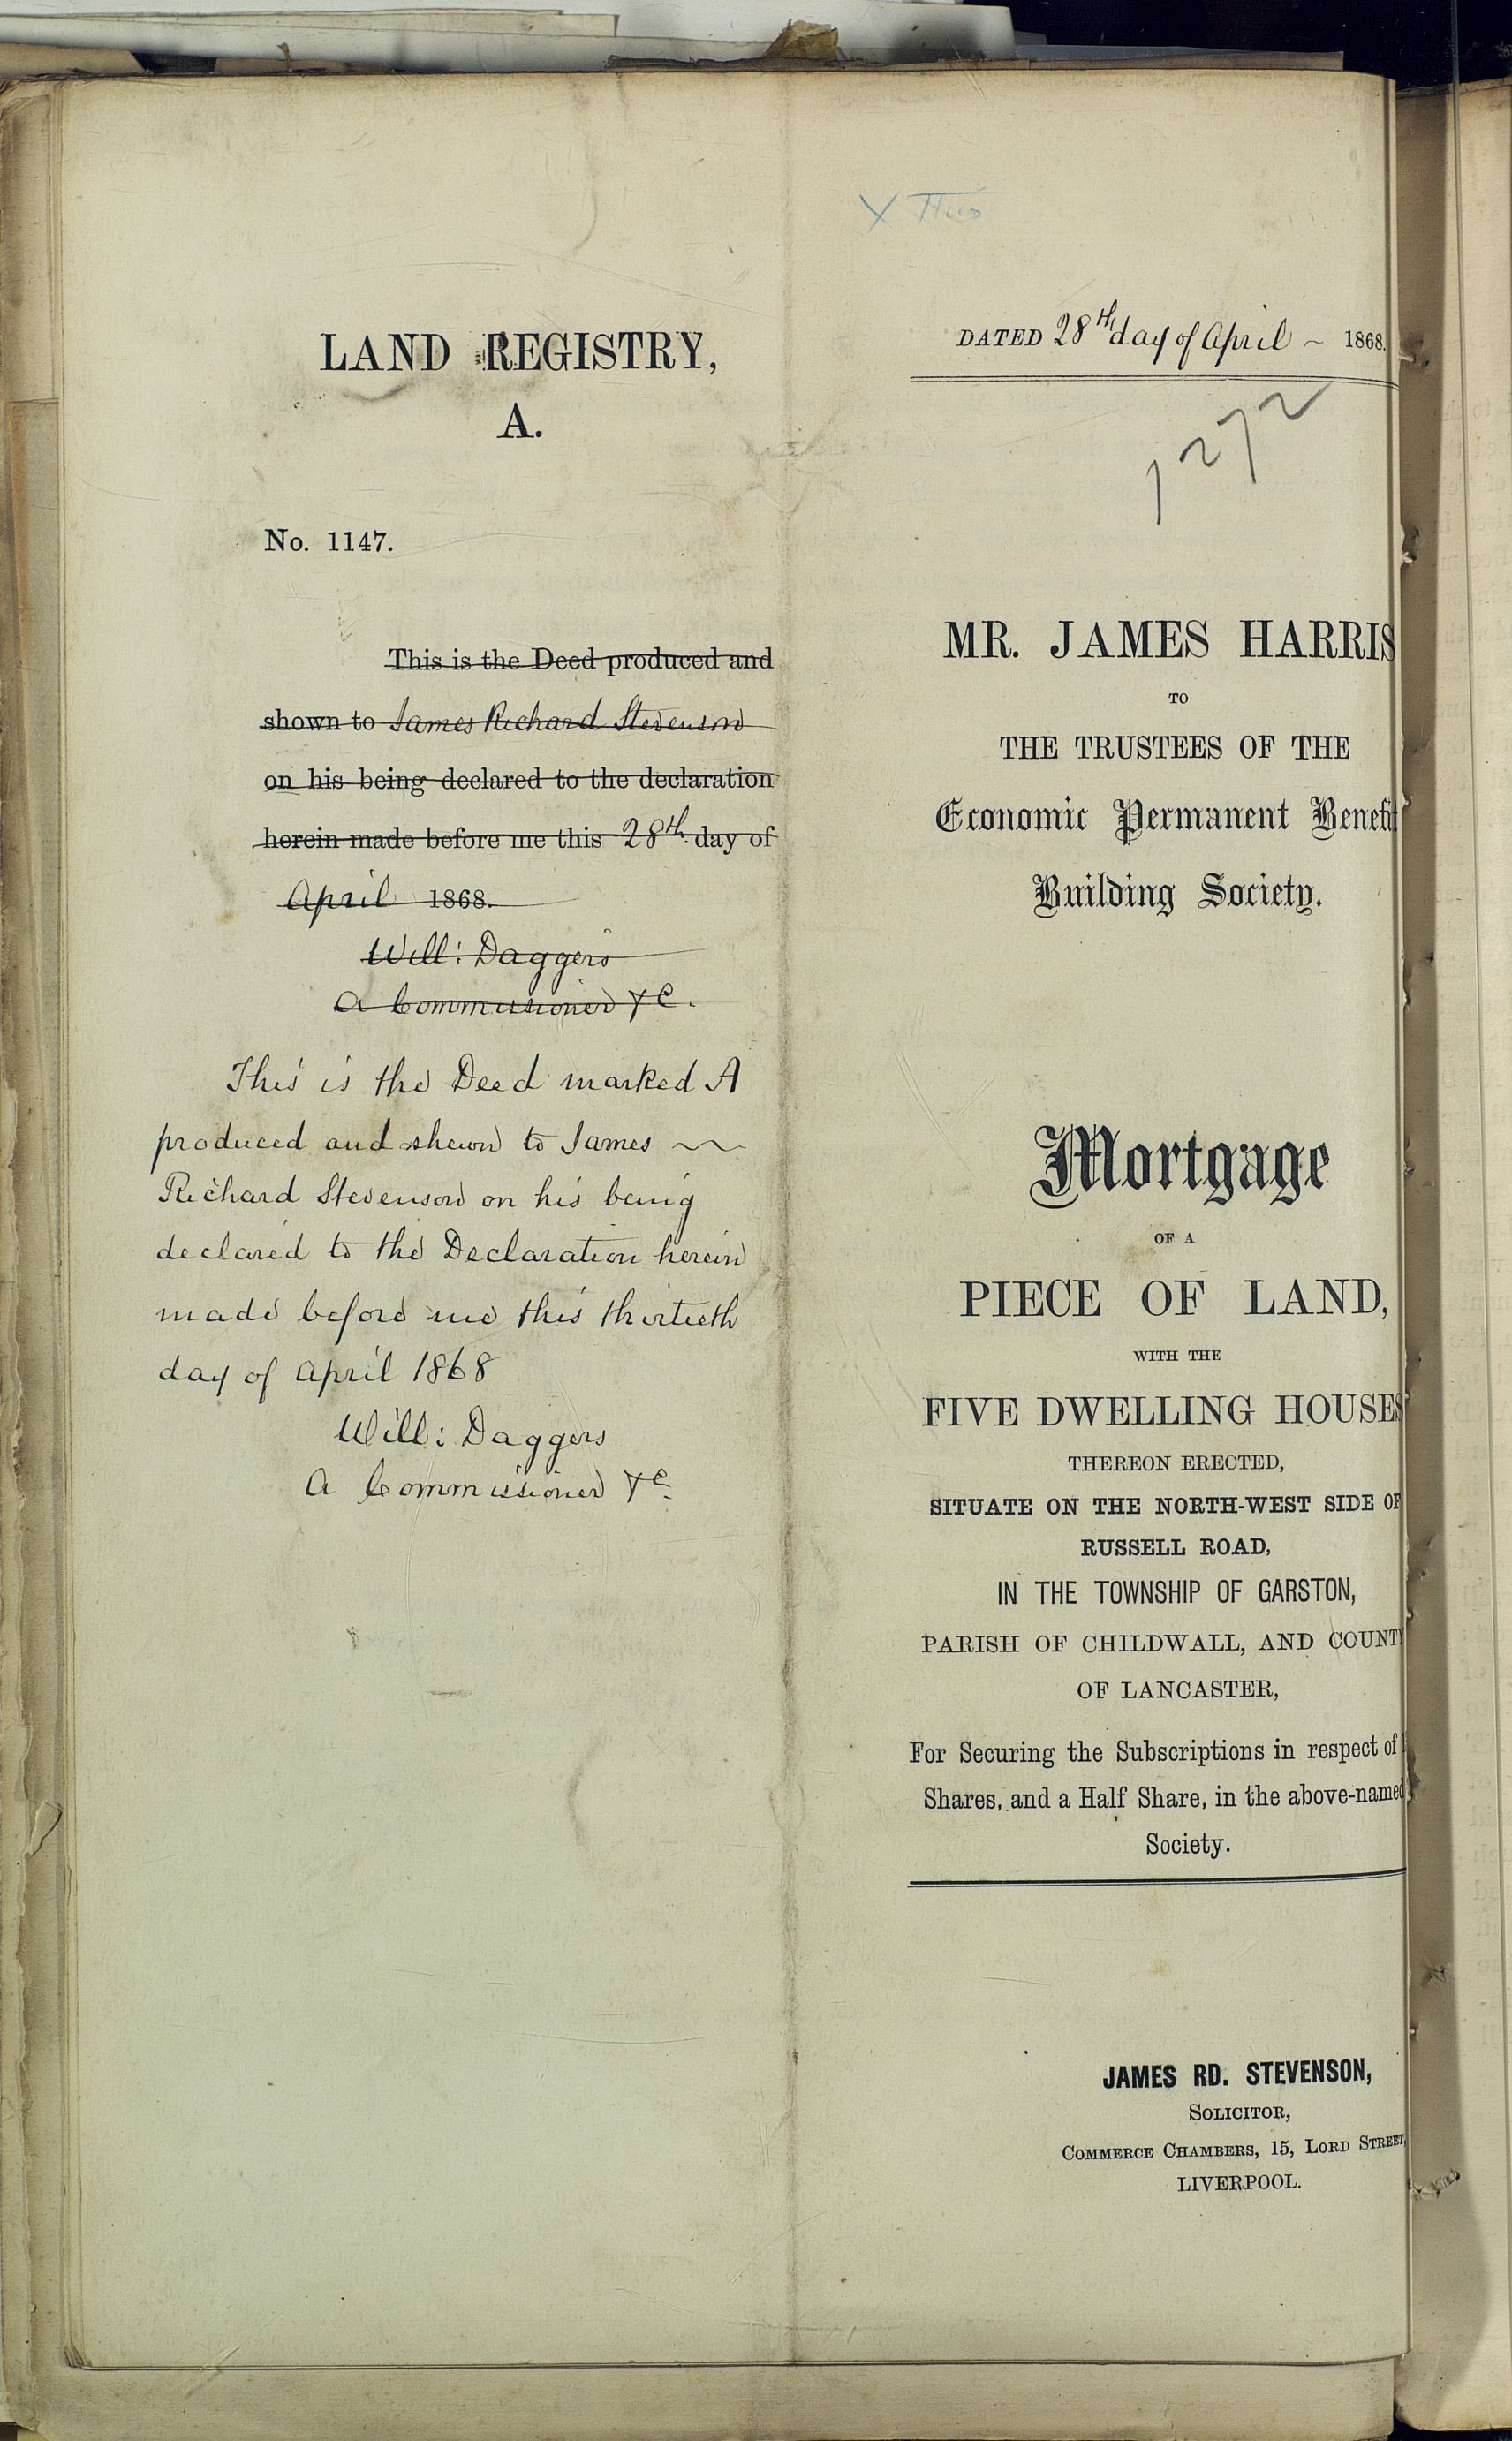 LAND REGISTRY,
A.
No. 1147.
This is the Deed produced and
shown to James Richard Stevenson
on his being declared to the declaration
herein made before me this 28th day of
April 1868.
Will: Daggers
A Commissioner &c.
This is the Deed marked A
produced and shewn to James
Richard Stevenson on his being
declared to the Declaration herein
made before me this thirtieth
day of April 1868
Will: Daggers
A Commissioner &c
X This
DATED 28th day of April ~ 1868.
1272
MR. JAMES HARRIS
TO
THE TRUSTEES OF THE
Economic Permanent Benefit
Building Society.
Mortgage
OF A
PIECE OF LAND,
WITH THE
FIVE DWELLING HOUSES
THEREON ERECTED,
SITUATE ON THE NORTH-WEST SIDE OF
RUSSELL ROAD,
IN THE TOWNSHIP OF GARSTON,
PARISH OF CHILDWALL, AND COUNTY
OF LANCASTER,
For Securing the Subscriptions in respect of
Shares, and a Half Share, in the above-named
Society.
JAMES RD. STEVENSON,
SOLICITOR,
COMMERCE CHAMBERS, 15, LORD STREET,
LIVERPOOL.